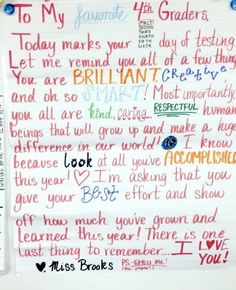 To My favorite 4th Graders,
Today marks your FIRST SECOND THIRD FOURTH FIFTH SIXTH day of testing
Let me remind you all of a few things
You are BRILLIANT, Creative
and oh so SMART! Most importantly,
you all are kind, caring, RESPECTFUL human
beings that will grow up and make a huge
difference in our world! I know
because Look at all you've ACCOMPLISHED
this year! ♡ I'm asking that you
give your Best effort and show
off how much you've grown and
learned this year! There is one
last thing to remember... I LOVE
♥ Miss Brooks YOU!